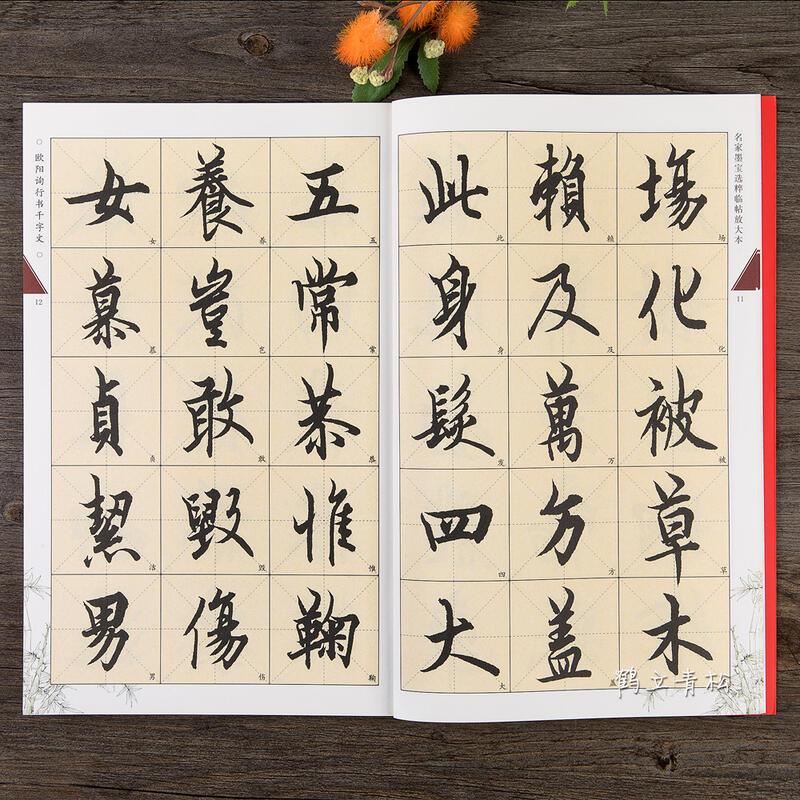 名家墨宝选粹临帖放大本
11
場化被草木
场化被草
賴及萬方蓋
赖及万方盖
此身髮四大
此身发四大
五常恭惟鞠
五常恭惟鞠
養豈敢毀傷
养岂敢毁伤
女慕貞絜男
女慕贞洁男
○欧阳询行书千字文○
12
鹤文青松